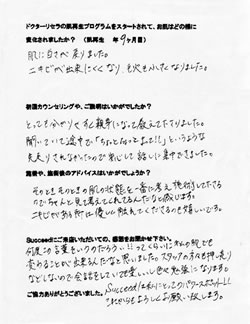 ドクターリセラの肌再生プログラムをスタートされて、お肌はどの様に
変化されましたか？（肌再生 年9ヶ月目）
肌に白さが戻りました。
ニキビが出来にくくなり、毛穴も小さくなりました。
初回カウンセリングや、ご説明はいかがでしたか？
とっても分かりやすく親身になって教えて下さりました。
聞いていて途中で「ちょっと待って！！」というような
先走りされなかったので安心して話しに集中できました。
施術や、施術後のアドバイスはいかがでしたか？
そのときそのときの肌の状態を一番に考え施術して下さる
のでちゃんと見て考えてくれてるんだなと感じます。
ニキビがある所は優しく触れてくださるのも嬉しいです。
Succeedにご来店いただいての、感想をお聞かせ下さい。
何度この言葉をいうのだろう…!!ってくらいに本人の気でも
変わることが出来るんだなと思いました。スタッフの方も押し売り
などしないので会話をしていて楽しいし色々勉強になります。
ご協力ありがとうございました。